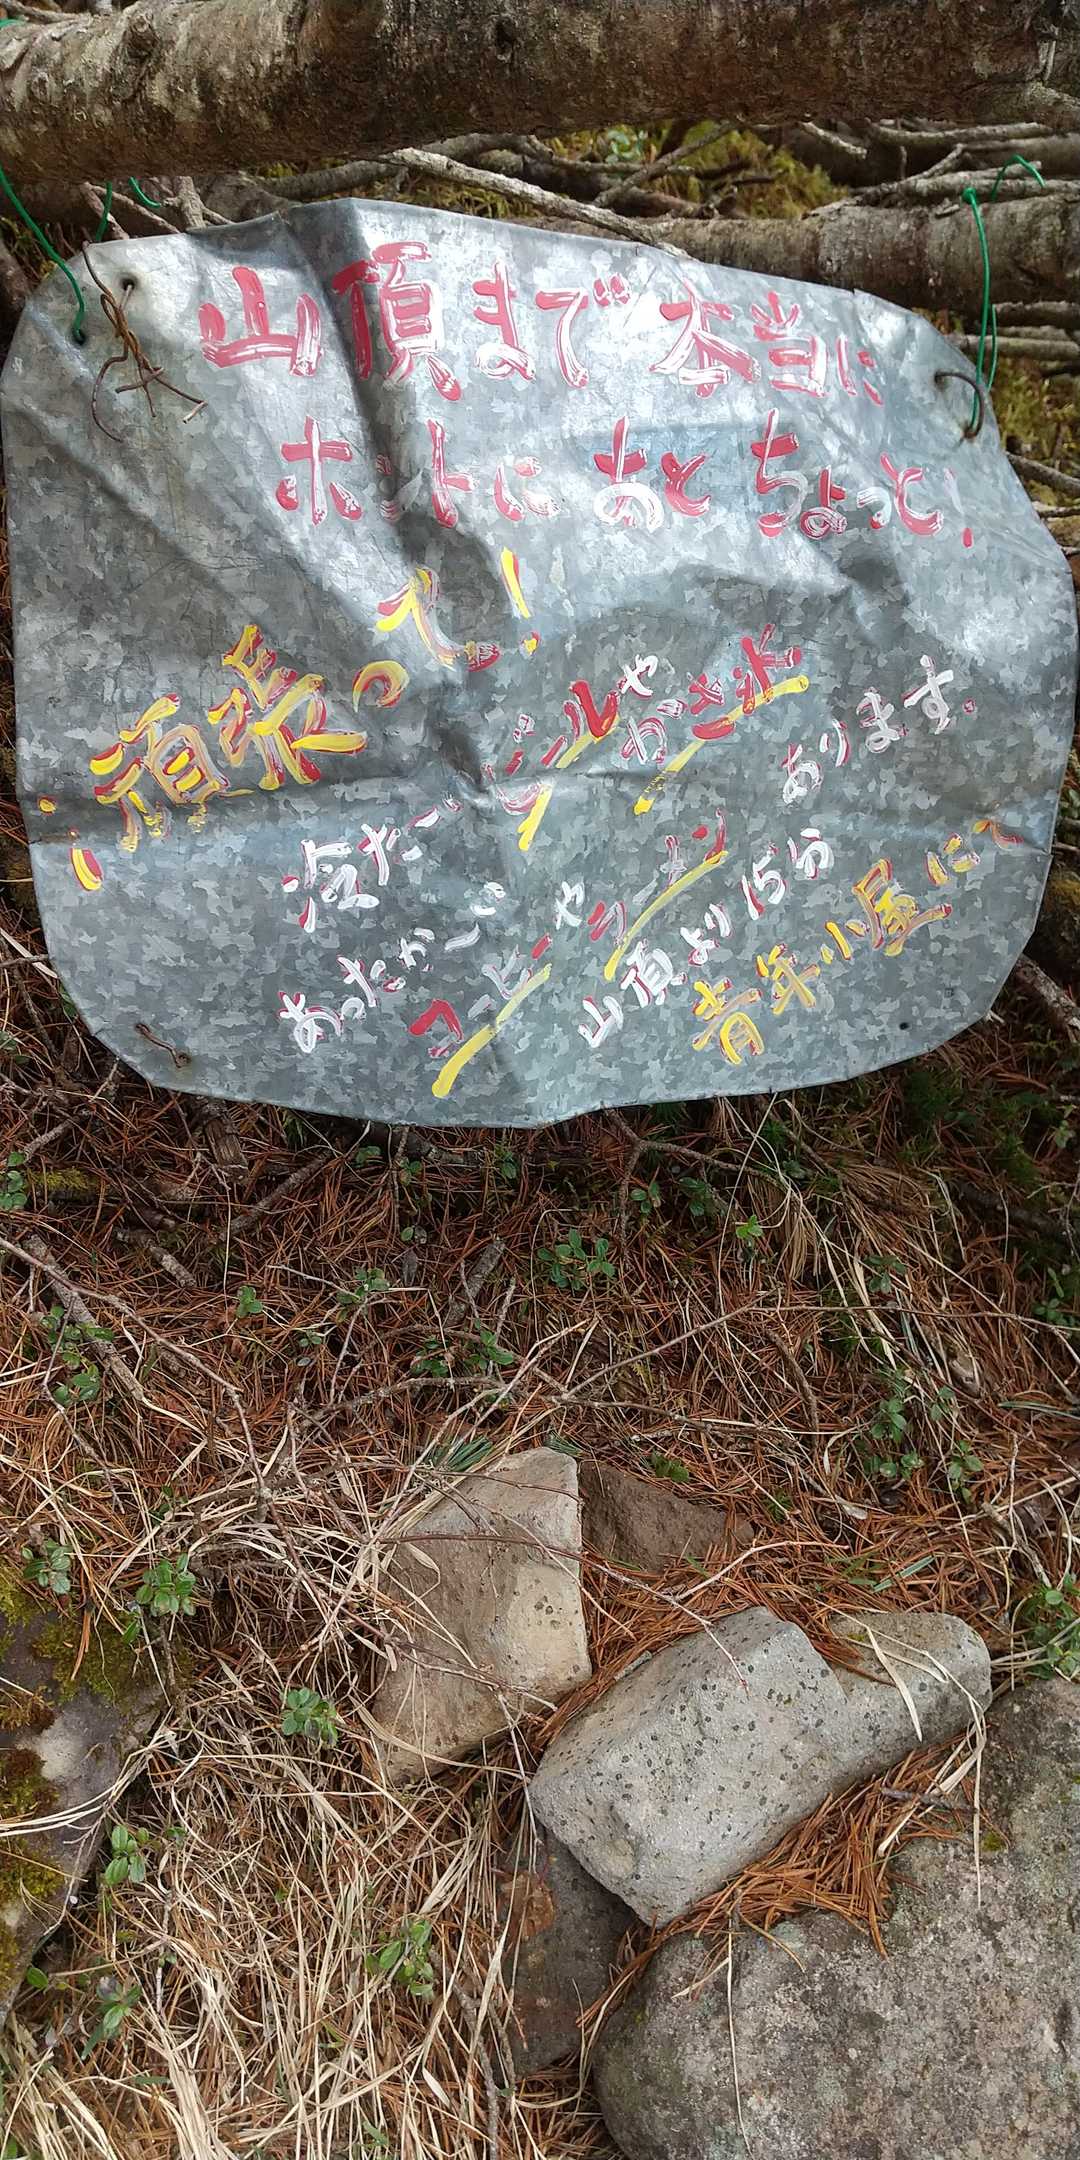 山頂まで本当に
ホントにあとちょっと!
頑張って!!
冷た〜いビールやかき氷
あったか〜いコーヒーやラーメンあります。
山頂より15分
青年小屋にて